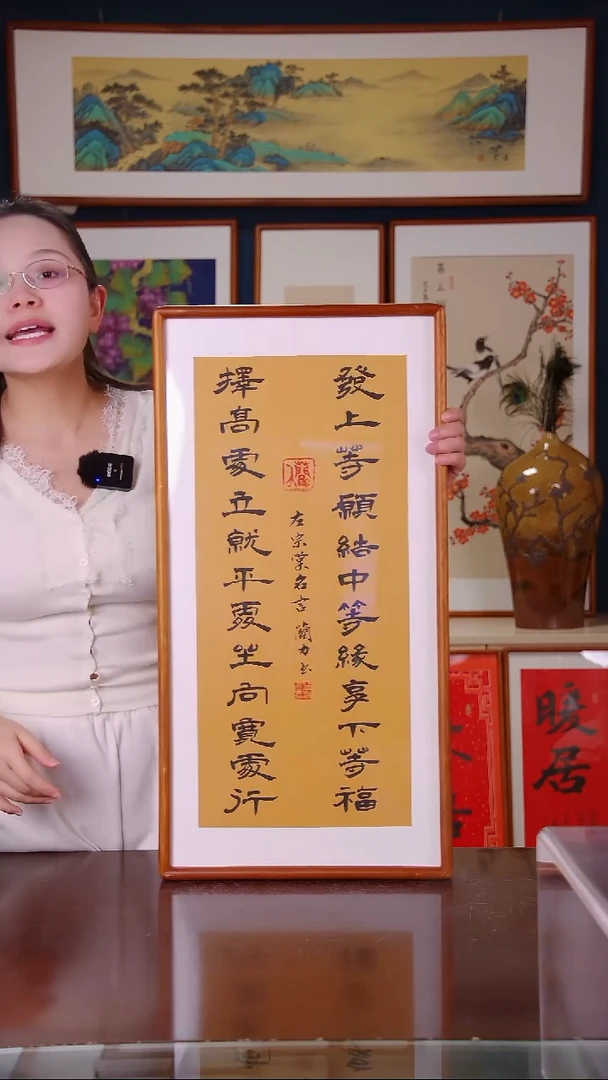 發上等願結中等緣享下等福
擇高處立就平處坐向寬處行
左宗棠名言 蘭力书
暖居